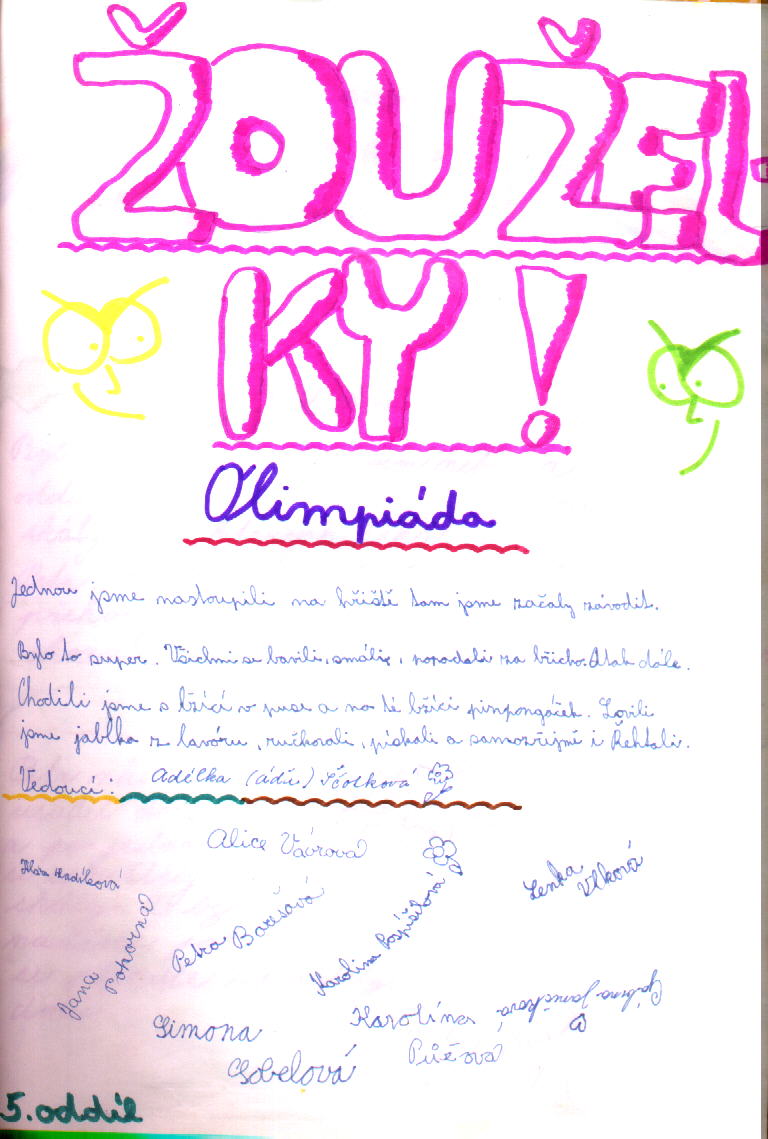 ŽOUŽEL-
KY!
Olimpiáda
Jednou jsme nastoupili na hřiště tam jsme začaly závodit.
Bylo to super. Všichni se bavili, smáli, popadali za břicho. Atak dále.
Chodili jsme s lžící v puse a na té lžíci pinpongáček. Lovili
jsme jablka z lavóru, ručkovali, pískali a samozřejmě i Řehtali.
Vedoucí: Adélka (ádü)
Alice Vávrová
Jana Pokorná
Petra Barešová
Karolína Pospíšilová
Lenka Vlková
Simona
Gobelová
Karolína
Půčová
Gábina Janečková
5. oddíl